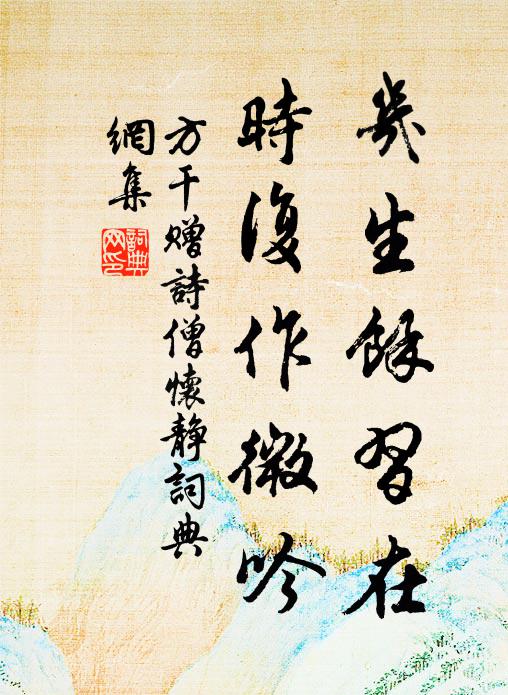 幾生餘習在
時復作微吟
方干贈詩僧懷靜詞典
網集
詞典網印